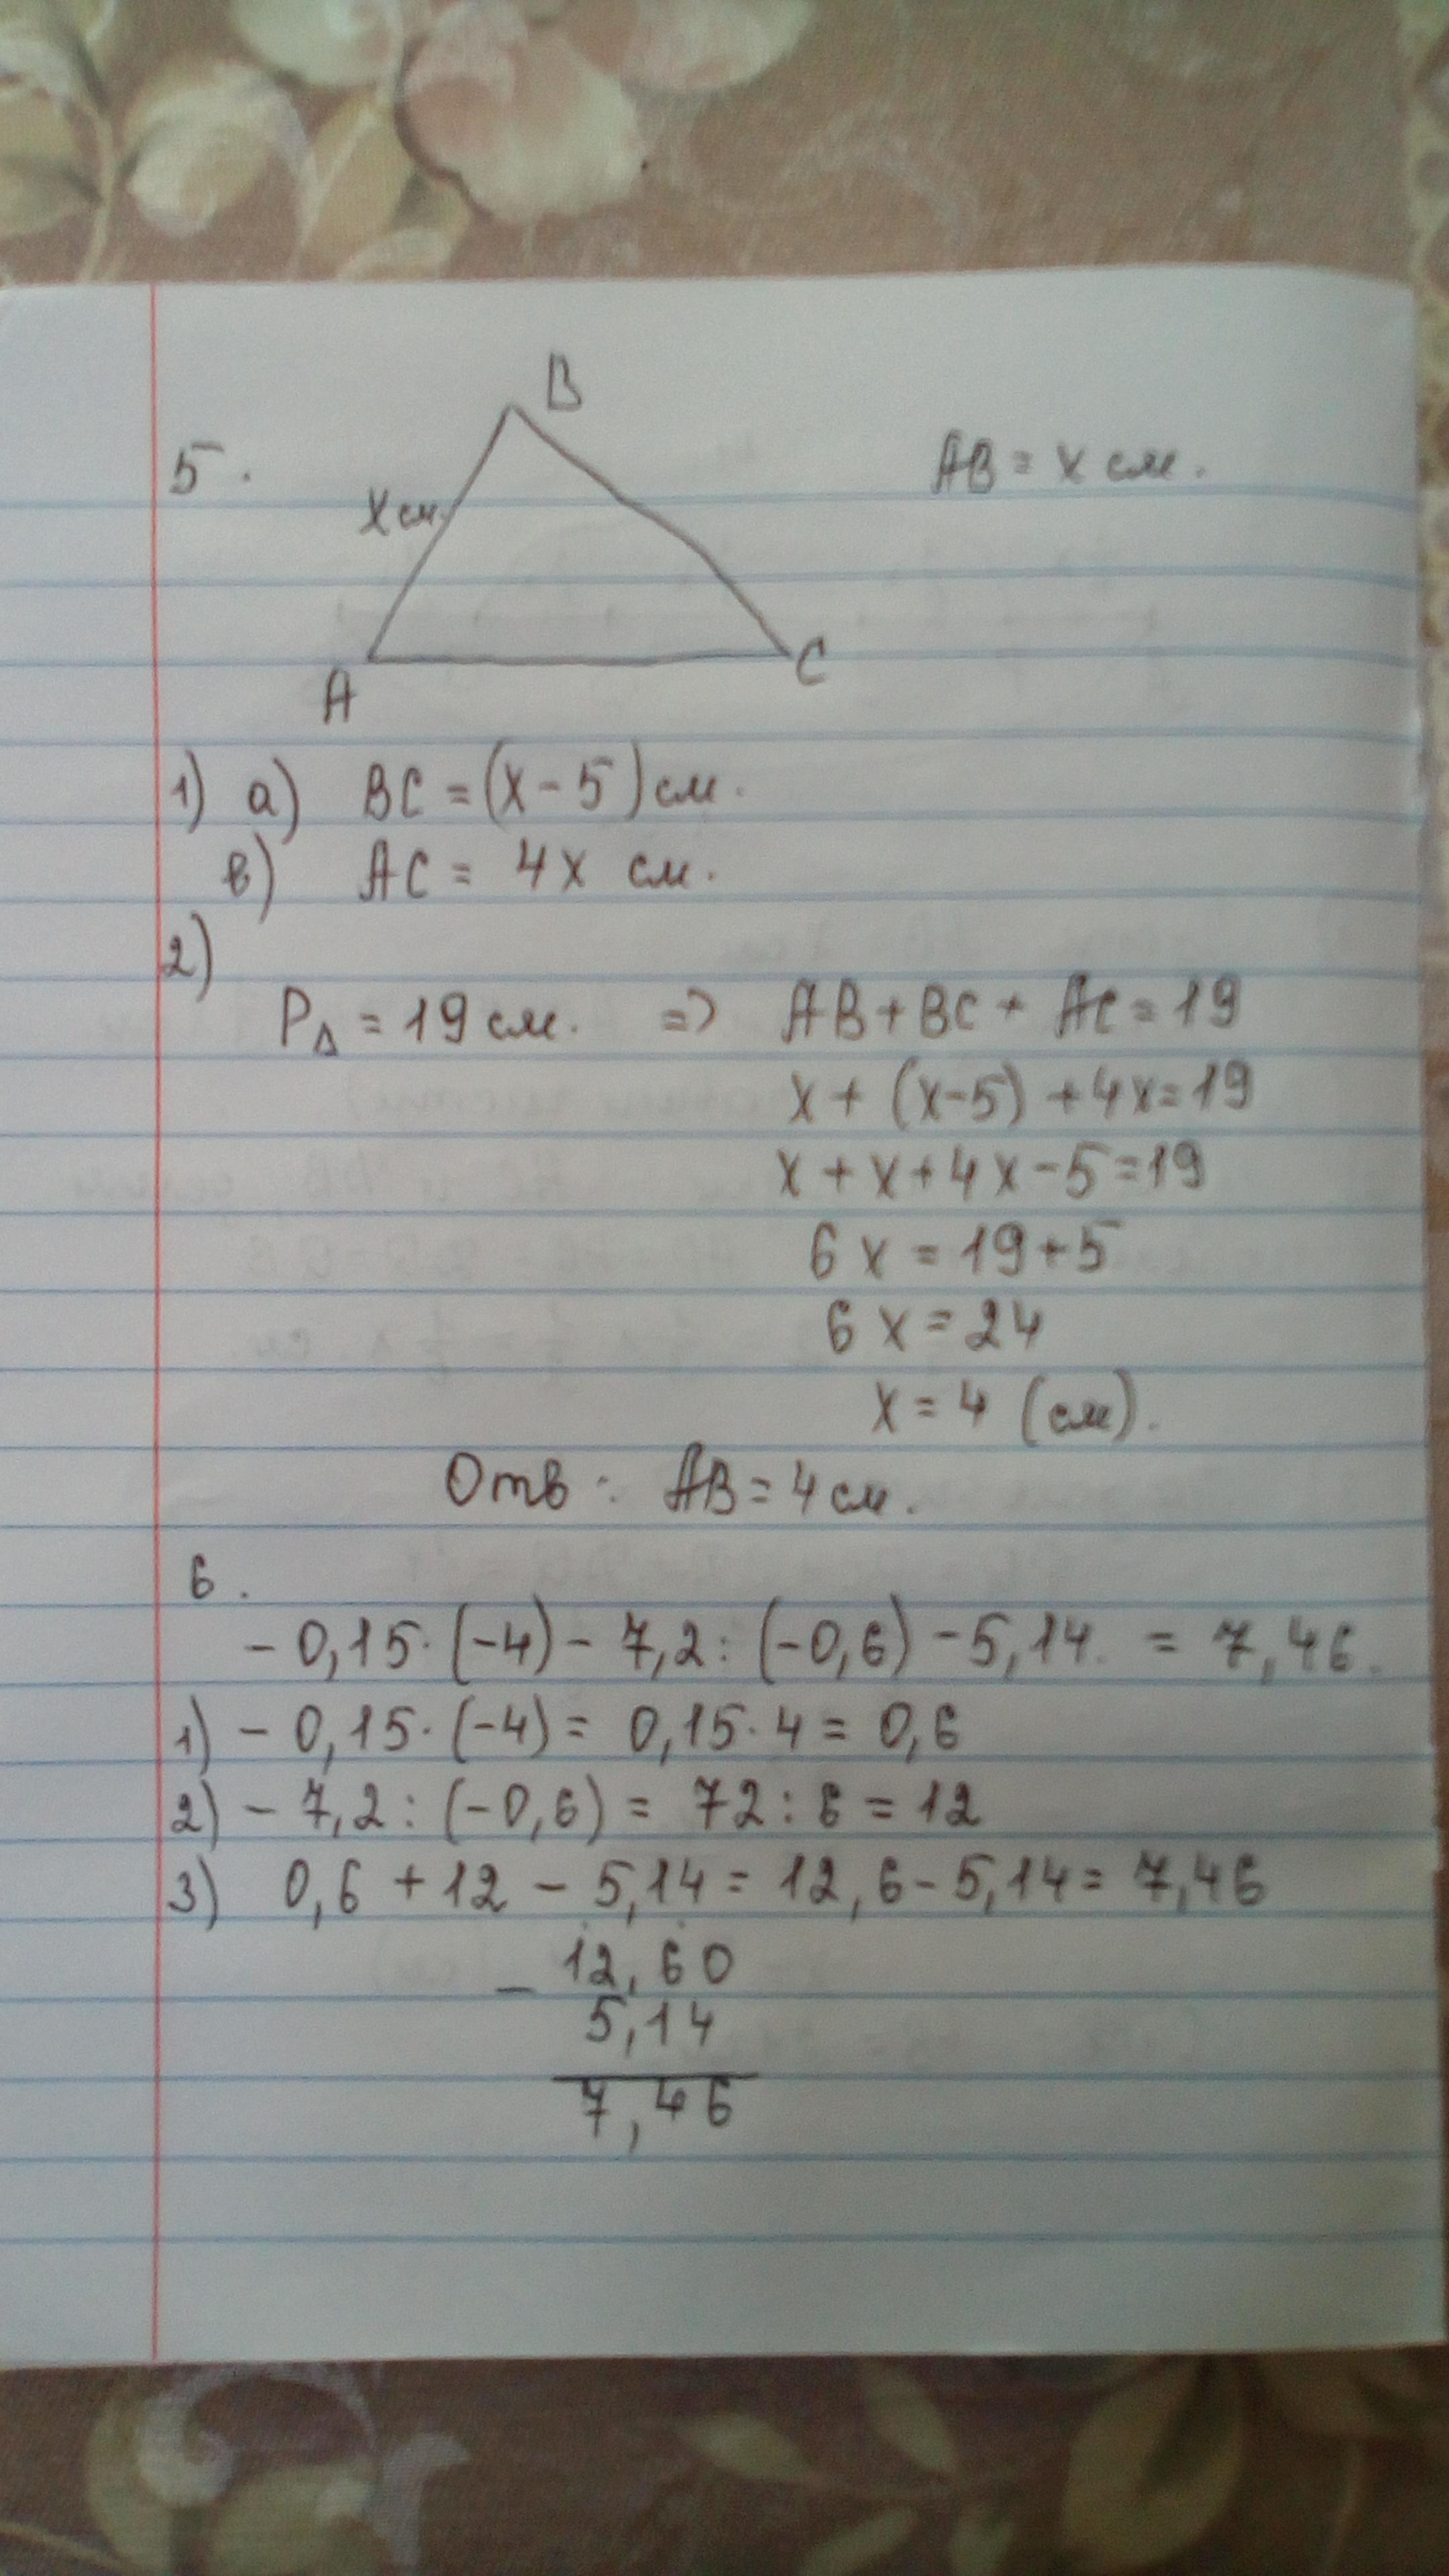 B
5.
AB = x см.
x см.
A
C
1) а) BC = (x - 5) см.
в) AC = 4x см.
2)
P∆ = 19 см. => AB + BC + AC = 19
x + (x-5) + 4x = 19
x + x + 4x - 5 = 19
6x = 19 + 5
6x = 24
x = 4 (см).
Отв: AB = 4 см.
6.
- 0,15 · (-4) - 7,2 : (-0,6) - 5,14. = 7,46.
1) - 0,15 · (-4) = 0,15 · 4 = 0,6
2) - 7,2 : (-0,6) = 72 : 6 = 12
3) 0,6 + 12 - 5,14 = 12,6 - 5,14 = 7,46
- 12,60
5,14
7,46